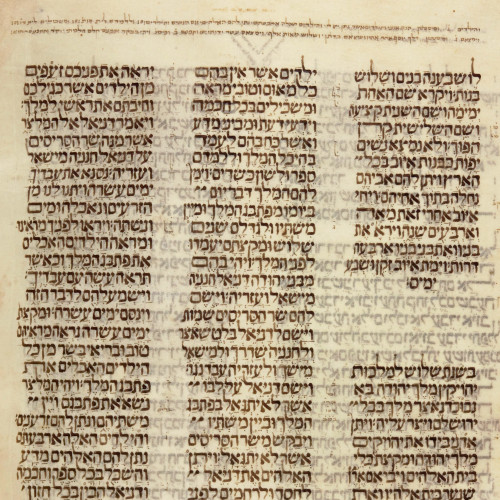 לו שבענה בנים ושלוש
בנות ויקרא שם האחת
ימימה ושם השנית קציעה
ושם השלישית קרן
הפוך ולא נמצא נשים
יפות כבנות איוב בכל
הארץ ויתן להם אביהם
נחלה בתוך אחיהם ויחי
איוב אחרי זאת מאה
וארבעים שנה וירא את
בניו ואת בני בניו ארבעה
דרות וימת איוב זקן ושבע
ימים
בשנת שלוש למלכות
יהויקים מלך יהודה בא
נבוכדנאצר מלך בבל
ירושלם ויצר עליה ויתן
אדני בידו את יהויקים
מלך יהודה ומקצת כלי
בית האלהים ויביאם
ילדים אשר אין בהם
כל מאום וטובי מראה
ומשכילים בכל חכמה
וידעי דעת ומביני מדע
ואשר כח בהם לעמד
בהיכל המלך וללמדם
ספר ולשון כשדים וימן
להם המלך דבר יום
ביומו מפתבג המלך ומיין
משתיו ולגדלם שנים
שלוש ומקצתם יעמדו
לפני המלך ויהי בהם
מבני יהודה דניאל חנניה
מישאל ועזריה וישם
להם שר הסריסים שמות
וישם לדניאל בלטשאצר
ולחנניה שדרך ולמישאל
מישך ולעזריה עבד נגו
וישם דניאל על לבו
אשר לא יתגאל בפתבג
המלך וביין משתיו
ויבקש משר הסריסים
אשר לא יתגאל ויתן
האלהים את דניאל
לחסד ולרחמים לפני
יראה את פניכם זעפים
מן הילדים אשר כגילכם
וחיבתם את ראשי למלך
ויאמר דניאל אל המלצר
אשר מנה שר הסריסים
על דניאל חנניה מישאל
ועזריה נס נא את עבדיך
ימים עשרה ויתנו לנו מן
הזרעים ונאכלה ומים
ונשתה ויראו לפניך מראינו
ומראה הילדים האכלים
את פתבג המלך וכאשר
תראה עשה עם עבדיך
וישמע להם לדבר הזה
וינסם ימים עשרה ומקצת
ימים עשרה נראה מראיהם
טוב ובריאי בשר מן כל
הילדים האכלים את
פתבג המלך ויהי המלצר
נשא את פתבגם ויין
משתיהם ונתן להם זרענים
והילדים האלה ארבעתם
נתן להם האלהים מדע
והשכל בכל ספר וחכמה
ודניאל הבין בכל חזון